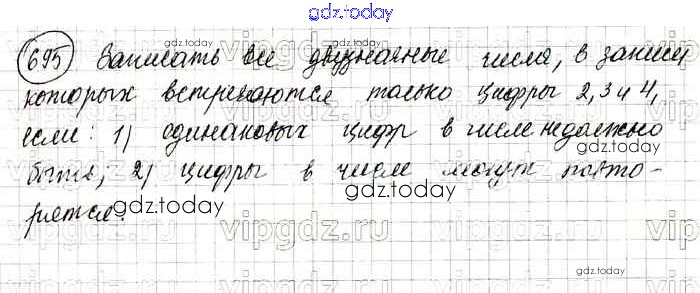 gdz.today
695 Записать все двузначные числа, в записи
gdz.today
которых встречаются только цифры 2, 3 и 4,
если: 1) одинаковых цифр в числе не должно
быть; 2) цифры в числе могут повто-
gdz.today
ряется.
gdz.today
vipgdz.ru
gdz.today